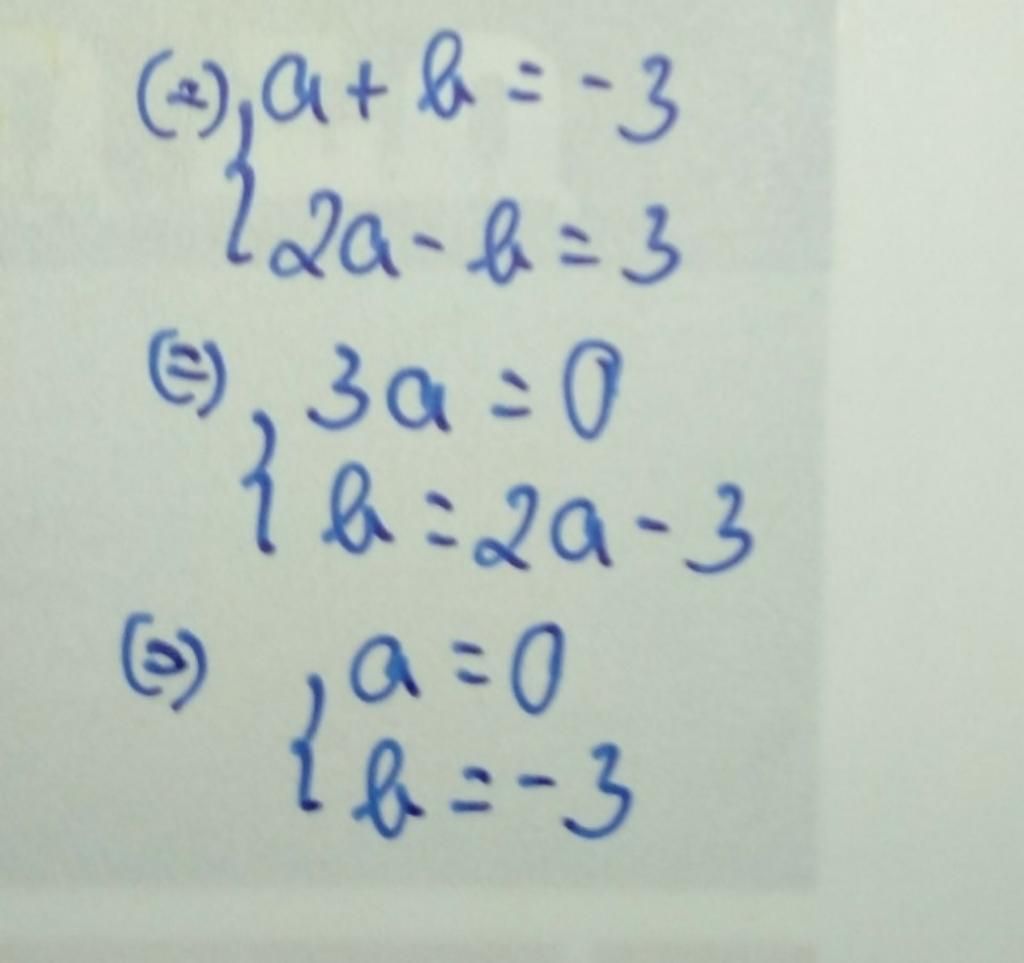 (=) { a + b = - 3
2a - b = 3
(=) { 3a = 0
b = 2a - 3
(=) { a = 0
b = - 3